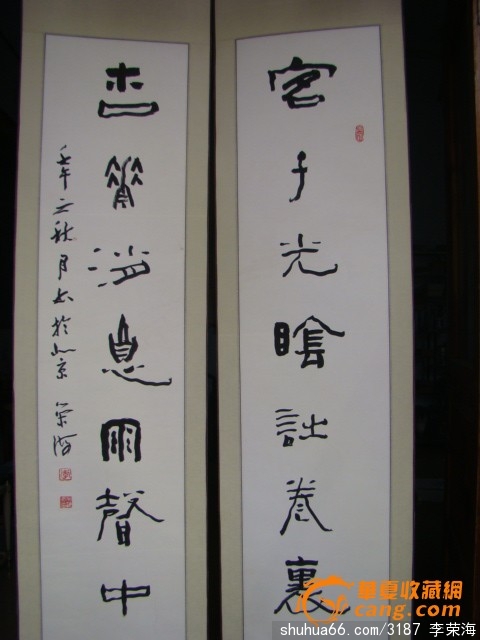 客子光陰詩卷裏
杏花消息雨聲中
壬午之秋月书於北京 荣海
華夏收藏網
cang.com
shuhua66.com/3187 李荣海